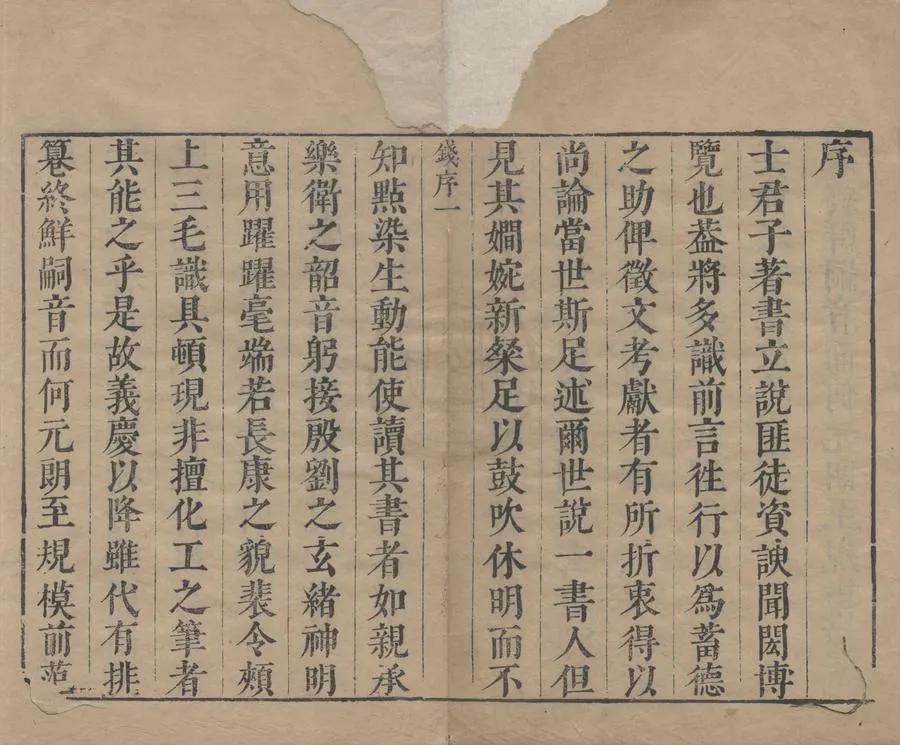 序
士君子著書立說匪徒資諛聞閎博
覽也葢將多識前言徃行以爲蓄德
之助俾徵文考獻者有所折衷得以
尚論當世斯足述爾世說一書人但
見其嫺婉新粲足以鼓吹休明而不
錢序一
知點染生動能使讀其書者如親承
樂衛之韶音躬接殷劉之玄緒神明
意用躍躍毫端若長康之貌裴令頰
上三毛識具頓現非擅化工之筆者
其能之乎是故義慶以降雖代有排
纂終鮮嗣音而何元朗至規模前范